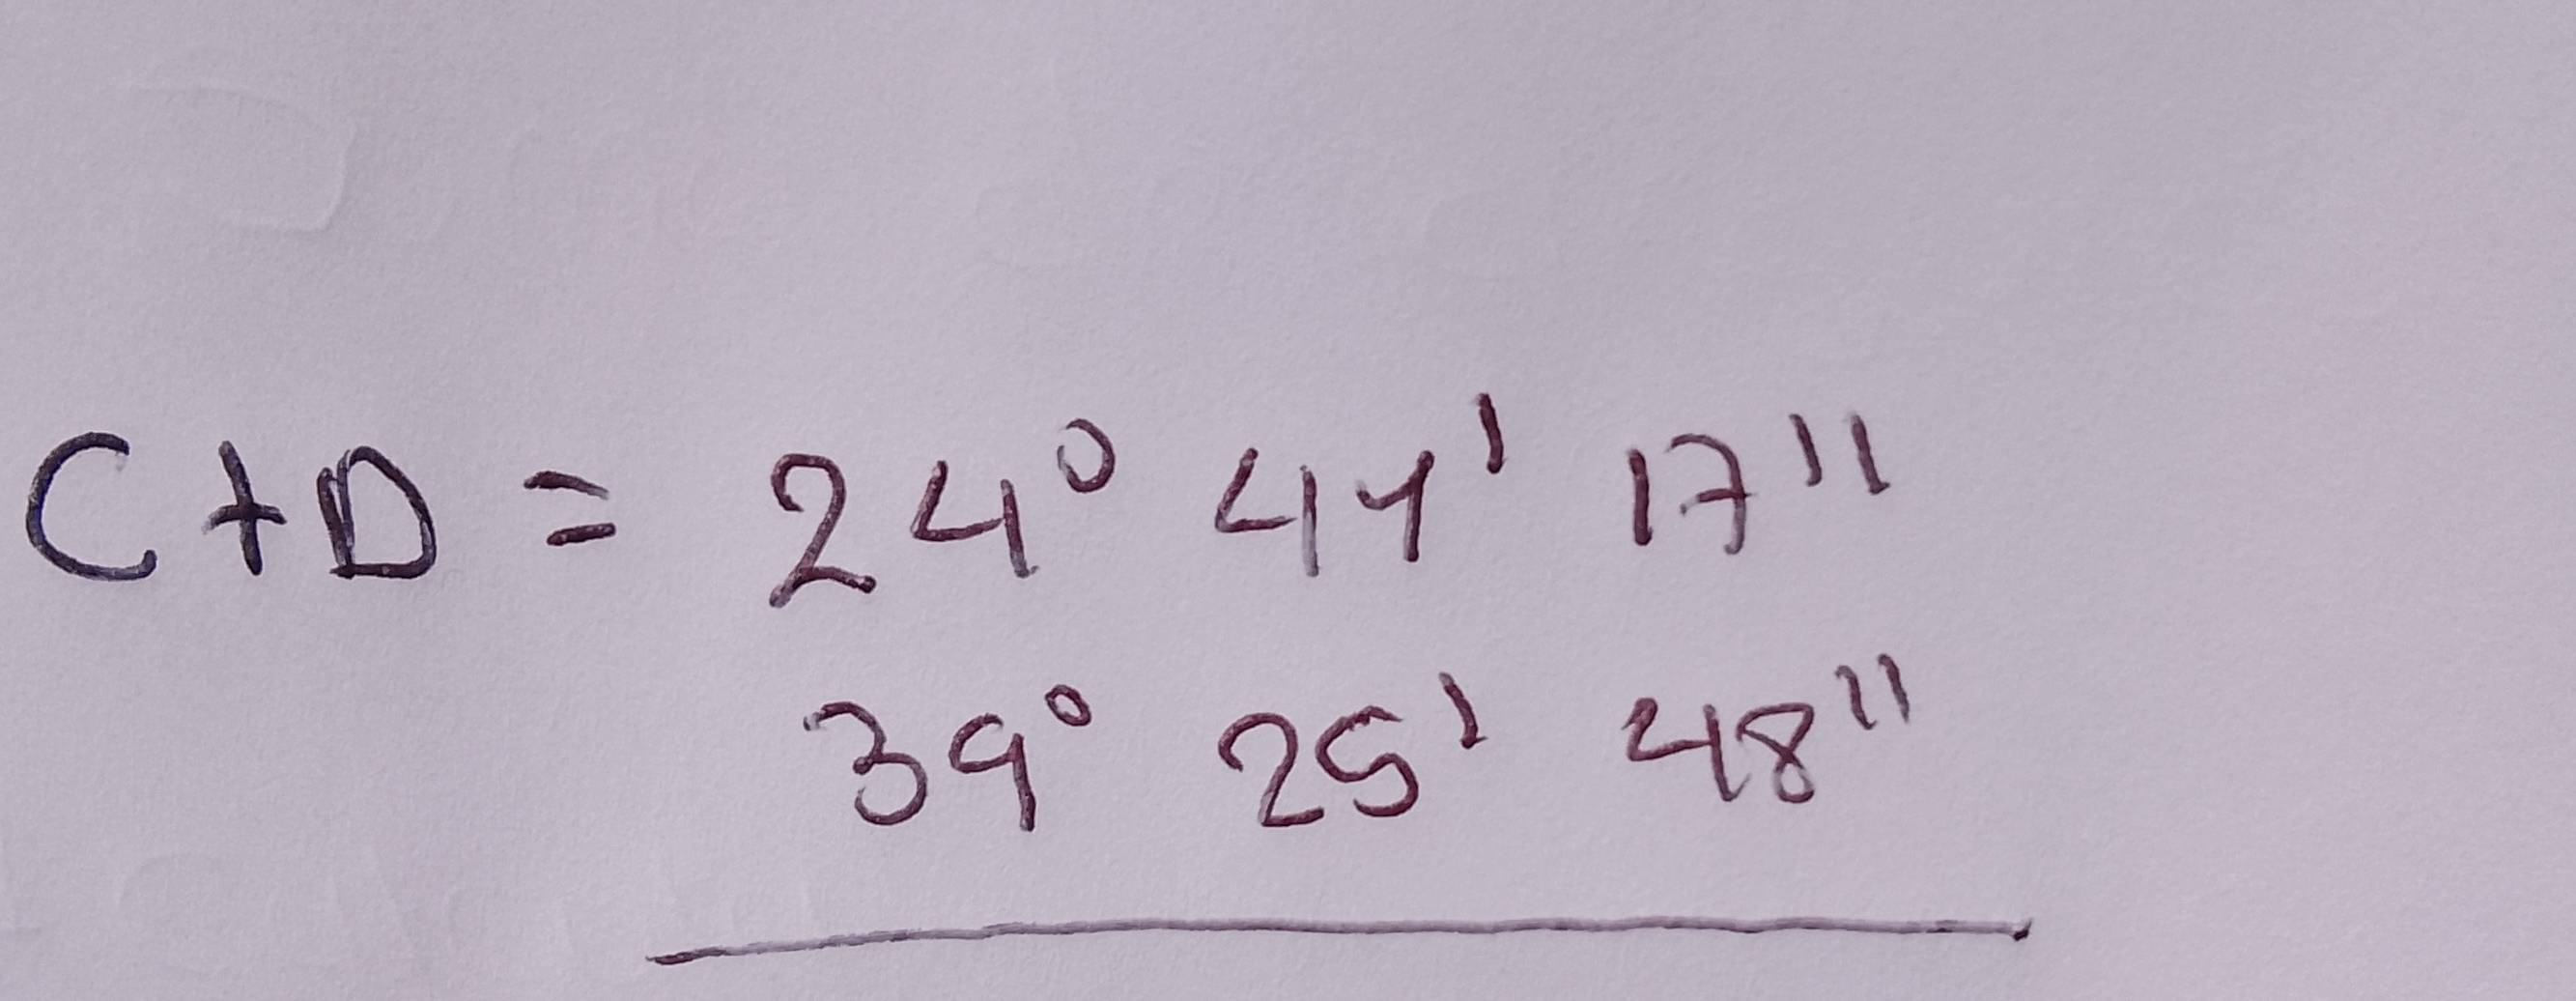 C+D = 24° 44' 17"
39° 25' 48"